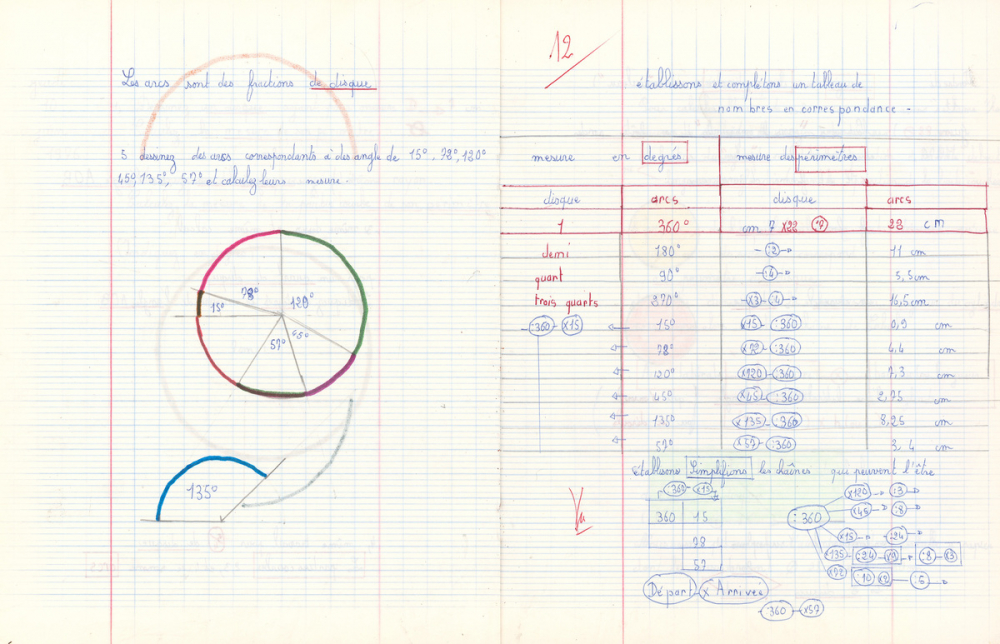 Les arcs sont des fractions de disque
3 dessinez des arcs correspondants à des angle de 15°, 78°, 120°
45°, 135°, 57° et calculez leurs mesure.
78°
15°
120°
57°
45°
135°
12
établissons et complétons un tableau de
nombres en correspondance -
mesure en degrés mesure des périmètres
disque arcs disque arcs
1 360° cm 7 x22 :7 22 cm
demi 180° :2 11 cm
quart 90° :4 5,5 cm
trois quarts 270° x3 :4 16,5 cm
:360 x15 15° x15 :360 0,9 cm
78° x72 :360 4,4 cm
120° x120 :360 7,3 cm
45° x45 :360 2,75 cm
135° x135 :360 8,25 cm
57° x57 :360 3,4 cm
établissons Simplifions les chaînes qui peuvent l'être
:360 x15
360 15
78
57
Départ x Arrivée
:360 x57
:360
x120 :3
x45 :8
x15 :24
x135 :24 x9 :8 x3
x72 :10 x2 :5
Vu